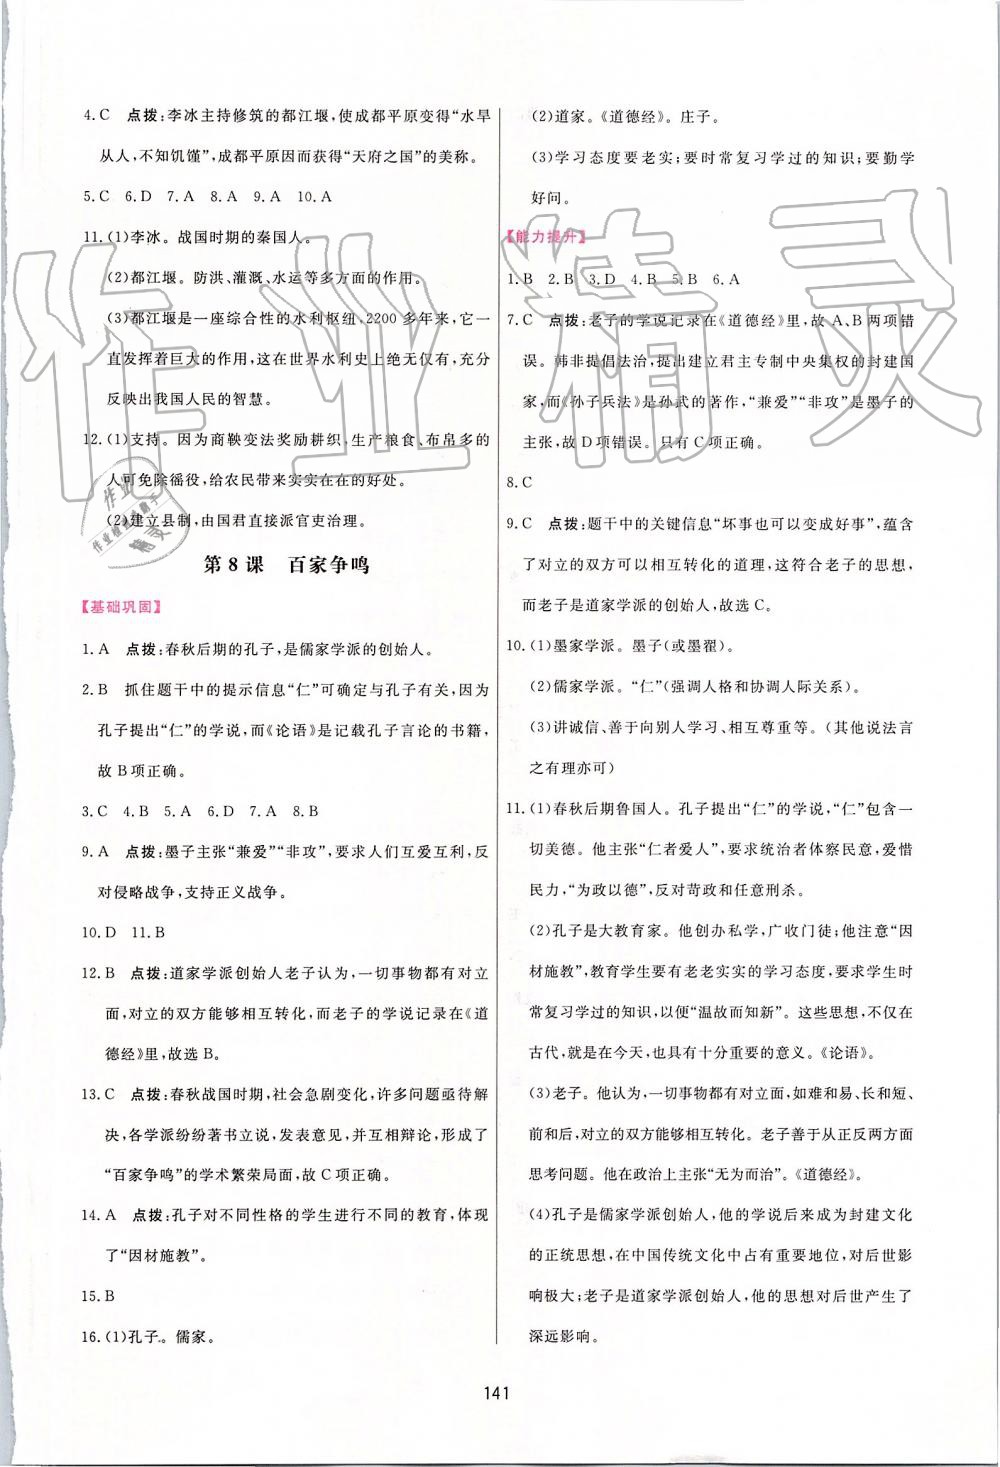 4. C　点拨:李冰主持修筑的都江堰,使成都平原变得“水旱
从人,不知饥馑”,成都平原因而获得“天府之国”的美称。
5. C　6. D　7. A　8. A　9. A　10. A
11. (1)李冰。战国时期的秦国人。
(2)都江堰。防洪、灌溉、水运等多方面的作用。
(3)都江堰是一座综合性的水利枢纽,2200 多年来,它一
直发挥着巨大的作用,这在世界水利史上绝无仅有,充分
反映出我国人民的智慧。
12. (1)支持。因为商鞅变法奖励耕织,生产粮食、布帛多的
人可免除徭役,给农民带来实实在在的好处。
(2)建立县制,由国君直接派官吏治理。
第 8 课　百家争鸣
【基础巩固】
1. A　点拨:春秋后期的孔子,是儒家学派的创始人。
2. B　抓住题干中的提示信息“仁”可确定与孔子有关,因为
孔子提出“仁”的学说,而《论语》是记载孔子言论的书籍,
故 B 项正确。
3. C　4. B　5. A　6. D　7. A　8. B
9. A　点拨:墨子主张“兼爱”“非攻”,要求人们互爱互利,反
对侵略战争,支持正义战争。
10. D　11. B
12. B　点拨:道家学派创始人老子认为,一切事物都有对立
面,对立的双方能够相互转化,而老子的学说记录在《道
德经》里,故选 B。
13. C　点拨:春秋战国时期,社会急剧变化,许多问题亟待解
决,各学派纷纷著书立说,发表意见,并互相辩论,形成了
“百家争鸣”的学术繁荣局面,故 C 项正确。
14. A　点拨:孔子对不同性格的学生进行不同的教育,体现
了“因材施教”。
15. B
16. (1)孔子。儒家。
(2)道家。《道德经》。庄子。
(3)学习态度要老实;要时常复习学过的知识;要勤学
好问。
【能力提升】
1. B　2. B　3. D　4. B　5. B　6. A
7. C　点拨:老子的学说记录在《道德经》里,故 A、B 两项错
误。韩非提倡法治,提出建立君主专制中央集权的封建国
家,而《孙子兵法》是孙武的著作,“兼爱”“非攻”是墨子的
主张,故 D 项错误。只有 C 项正确。
8. C
9. C　点拨:题干中的关键信息“坏事也可以变成好事”,蕴含
了对立的双方可以相互转化的道理,这符合老子的思想,
而老子是道家学派的创始人,故选 C。
10. (1)墨家学派。墨子(或墨翟)。
(2)儒家学派。“仁”(强调人格和协调人际关系)。
(3)讲诚信、善于向别人学习、相互尊重等。(其他说法言
之有理亦可)
11. (1)春秋后期鲁国人。孔子提出“仁”的学说,“仁”包含一
切美德。他主张“仁者爱人”,要求统治者体察民意,爱惜
民力,“为政以德”,反对苛政和任意刑杀。
(2)孔子是大教育家。他创办私学,广收门徒;他注意“因
材施教”,教育学生要有老老实实的学习态度,要求学生时
常复习学过的知识,以便“温故而知新”。这些思想,不仅在
古代,就是在今天,也具有十分重要的意义。《论语》。
(3)老子。他认为,一切事物都有对立面,如难和易、长和短、
前和后,对立的双方能够相互转化。老子善于从正反两方面
思考问题。他在政治上主张“无为而治”。《道德经》。
(4)孔子是儒家学派创始人,他的学说后来成为封建文化
的正统思想,在中国传统文化中占有重要地位,对后世影
响极大;老子是道家学派创始人,他的思想对后世产生了
深远影响。
141
作业精灵